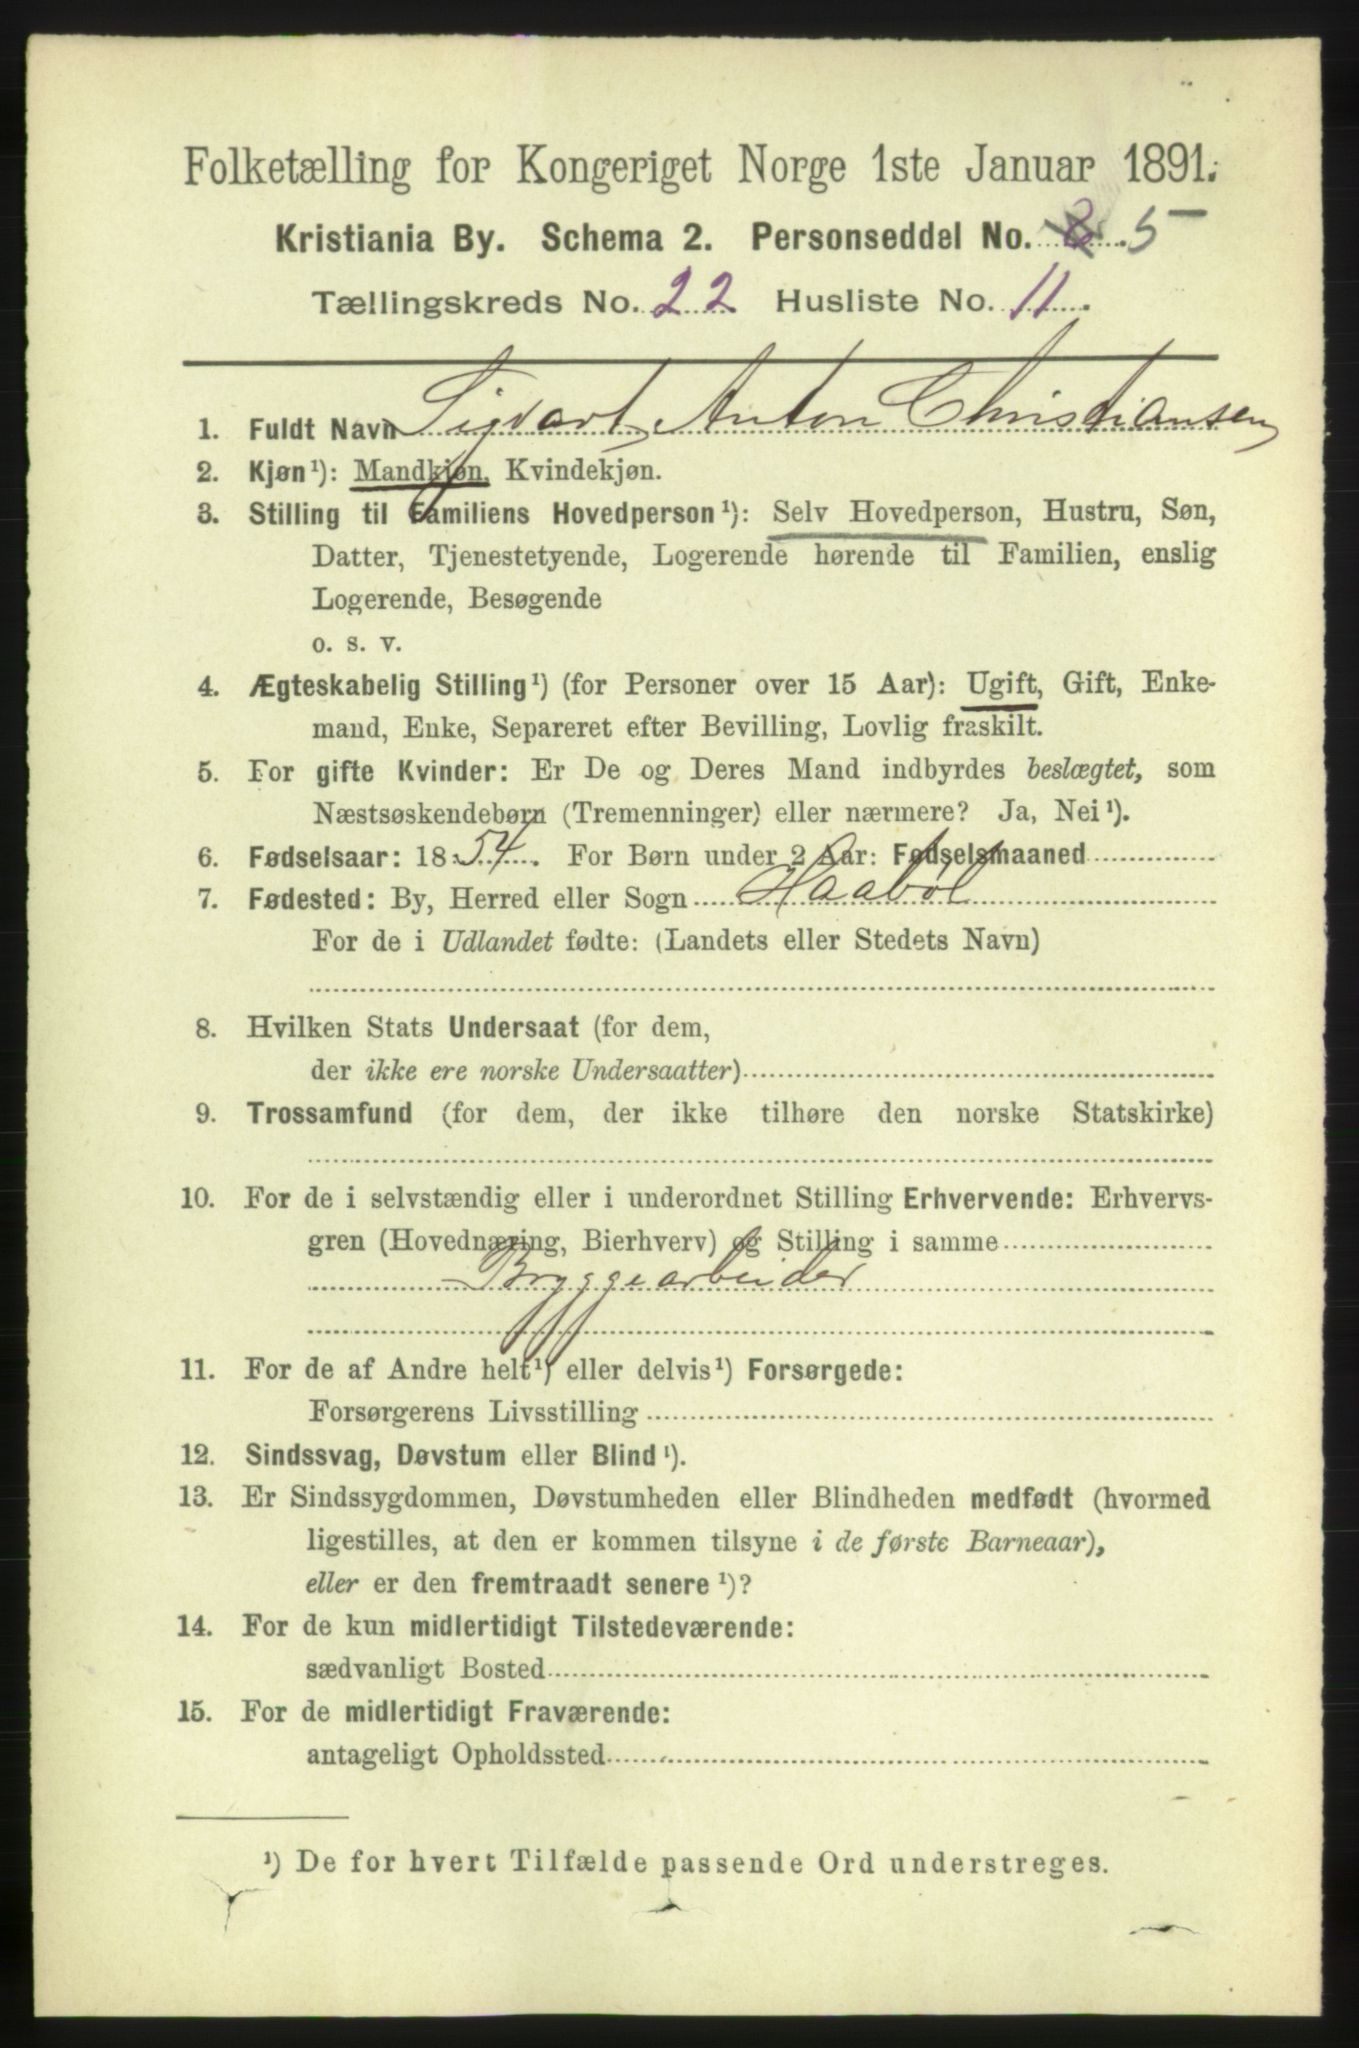 Folketælling for Kongeriget Norge 1ste Januar 1891.
Kristiania By. Schema 2. Personseddel No. 5
Tællingskreds No. 22 Husliste No. 11
1. Fuldt Navn Sigvart Anton Christiansen
2. Kjøn¹): Mandkjøn, Kvindekjøn.
3. Stilling til Familiens Hovedperson¹): Selv Hovedperson, Hustru, Søn,
Datter, Tjenestetyende, Logerende hørende til Familien, enslig
Logerende, Besøgende
o. s. v.
4. Ægteskabelig Stilling¹) (for Personer over 15 Aar): Ugift, Gift, Enke-
mand, Enke, Separeret efter Bevilling, Lovlig fraskilt.
5. For gifte Kvinder: Er De og Deres Mand indbyrdes beslægtet, som
Næstsøskendebørn (Tremenninger) eller nærmere? Ja, Nei¹).
6. Fødselsaar: 1854. For Børn under 2 Aar: Fødselsmaaned
7. Fødested: By, Herred eller Sogn Haabøl
For de i Udlandet fødte: (Landets eller Stedets Navn)
8. Hvilken Stats Undersaat (for dem,
der ikke ere norske Undersaatter)
9. Trossamfund (for dem, der ikke tilhøre den norske Statskirke)
10. For de i selvstændig eller i underordnet Stilling Erhvervende: Erhvervs-
gren (Hovednæring, Bierhverv) og Stilling i samme
Bryggearbeider
11. For de af Andre helt¹) eller delvis¹) Forsørgede:
Forsørgerens Livsstilling
12. Sindssvag, Døvstum eller Blind¹).
13. Er Sindssygdommen, Døvstumheden eller Blindheden medfødt (hvormed
ligestilles, at den er kommen tilsyne i de første Barneaar),
eller er den fremtraadt senere¹)?
14. For de kun midlertidigt Tilstedeværende:
sædvanligt Bosted
15. For de midlertidigt Fraværende:
antageligt Opholdssted
¹) De for hvert Tilfælde passende Ord understreges.